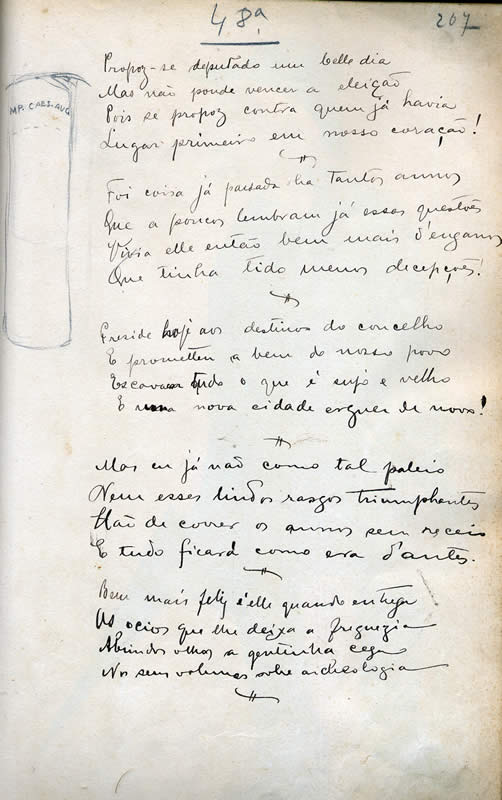 48ª
207
MP. CAES. AUG
Propoz-se deputado um bello dia
Mas não poude vencer a eleição
Pois se propoz contra quem já havia
Lugar primeiro em nosso coração!
Foi coisa já passada ha tantos annos
Que a poucos lembram já essas questões
Vivia elle então bem mais d'enganos
Que tinha tido menos decepções!
Preside hoje aos destinos do concelho
E prometteu a bem do nosso povo
Escavacar tudo o que é sujo e velho
E uma nova cidade erguer de novo!
Mas eu já não como tal paleio
Nem esses lindos rasgos triumphantes
Hão de correr os annos sem receio
E tudo ficará como era d'antes.
Bem mais feliz é elle quando entrega
Os ocios que lhe deixa a freguezia
Abrindo os olhos a gentinha cega
Nos seus volumes sobre archeologia